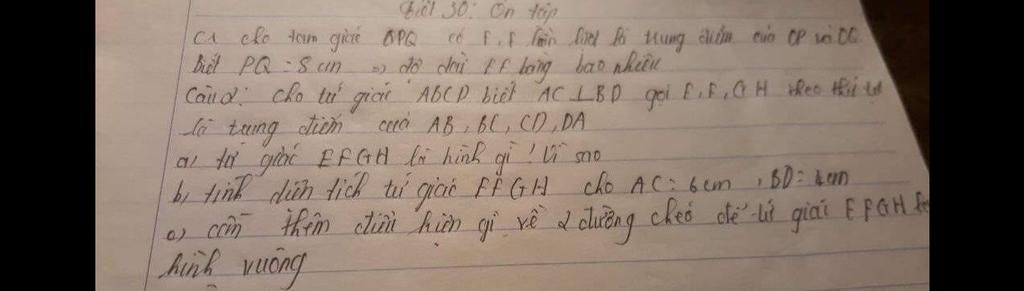 Tiết 30: Ôn tập
C1 cho tam giác OPQ có E, F lần lượt là trung điểm của OP và OQ
biết PQ = 8 cm => độ dài EF bằng bao nhiêu
Câu 2: cho tứ giác ABCD biết AC ⊥ BD gọi E, F, G, H theo thứ tự
là trung điểm của AB, BC, CD, DA
a) tứ giác EFGH là hình gì! Vì sao
b) tính diện tích tứ giác EFGH cho AC = 6 cm, BD = 4 cm
c) cần thêm điều kiện gì về 2 đường chéo để tứ giác EFGH
hình vuông